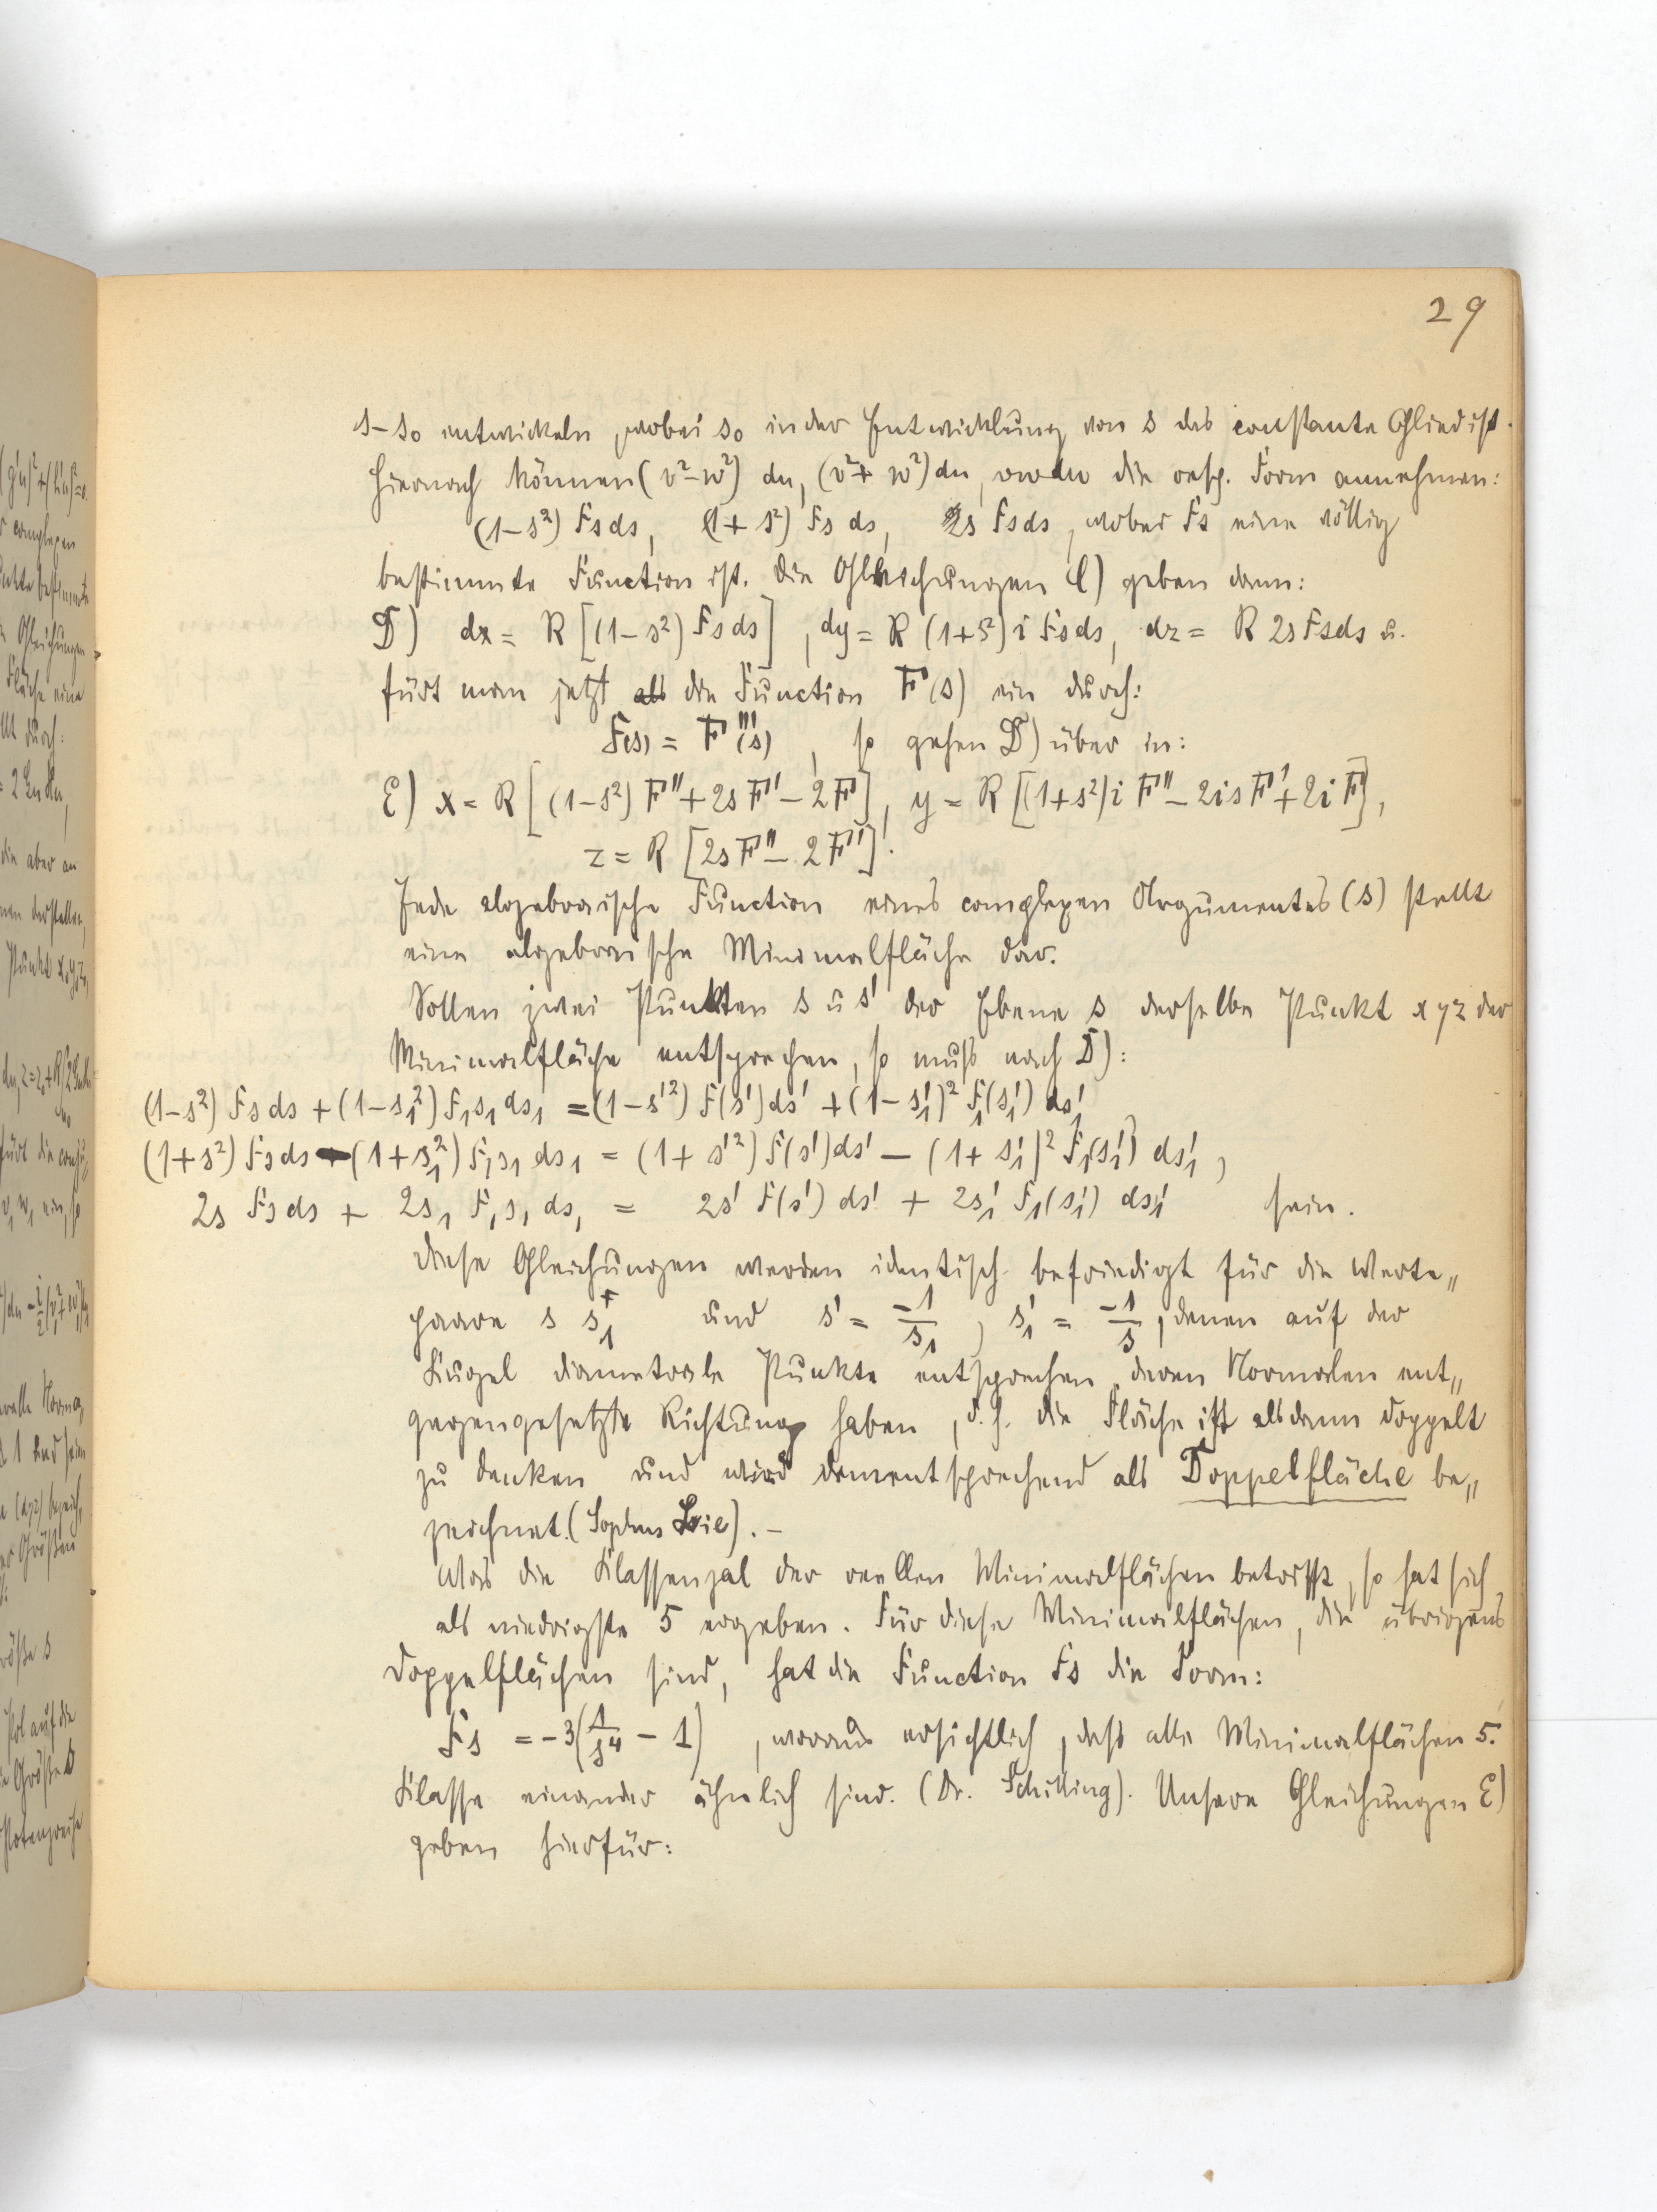 29
s-s₀ entwickeln, wobei s₀ in der Entwicklung von s das constante Glied ist.
Hiernach können (v²-w²) du, (v²+w²) du, vwdu die resp. Form annehmen:
(1-s²) Fs ds, (1+s²) Fs ds, 2s Fs ds, wobei Fs eine völlig
bestimmte Function ist. Die Gleichungen C) geben dann:
D) dx = R [(1-s²) Fs ds], dy = R (1+s²) i Fs ds, dz = R 2s Fs ds u.
fürt man jetzt als die Function F(s) ein durch:
F(s) = F'''(s), so gehen D) über in:
E) x = R [(1-s²) F'' + 2s F' - 2F], y = R [(1+s²) i F'' - 2is F' + 2i F],
z = R [2s F'' - 2F'].
Jede algebraische Function eines complexen Argumentes (s) stellt
eine algebraische Minimalfläche dar.
Sollen zwei Punkten s u s' der Ebene s derselbe Punkt xyz der
Minimalfläche entsprechen, so muß nach D):
(1-s²) Fs ds + (1-s₁²) F₁s₁ ds₁ = (1-s'²) F(s') ds' + (1-s₁')² F₁(s₁') ds₁'
(1+s²) Fs ds - (1+s₁²) F₁s₁ ds₁ = (1+s'²) F(s') ds' - (1+s₁')² F₁(s₁') ds₁',
2s Fs ds + 2s₁ F₁s₁ ds₁ = 2s' F(s') ds' + 2s₁' F₁(s₁') ds₁' sein.
Diese Gleichungen werden identisch befriedigt für die Werte„
paare s s₁ und s' = -1/s₁, s₁' = -1/s, denen auf der
Kugel diametrale Punkte entsprechen, deren Normalen ent„
gegengesetzte Richtung haben, d.h. die Fläche ist alsdann doppelt
zu denken und wird dementsprechend als Doppelfläche be„
zeichnet. (Sophus Lie). -
Was die Klassenzal der reellen Minimalflächen betrifft, so hat sich
als niedrigste 5 ergeben. Für diese Minimalflächen, die übrigens
Doppelflächen sind, hat die Function Fs die Form:
Fs = -3(1/s⁴ - 1), woraus ersichtlich, daß alle Minimalflächen 5.
Klasse einander ähnlich sind. (Dr. Schilling). Unsere Gleichungen E)
geben hierfür: